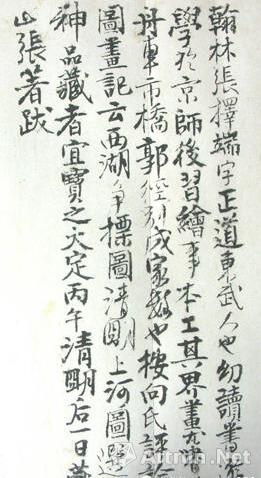 翰林張擇端字正道東武人也幼讀書
學於京師後習繪事本工其界畫尤
舟車市橋郭徑別成家數也按向氏評
圖畫記云西湖争標圖清明上河圖選
神品藏者宜寶之大定丙午清明后一日燕
山張著跋
Artron.Net